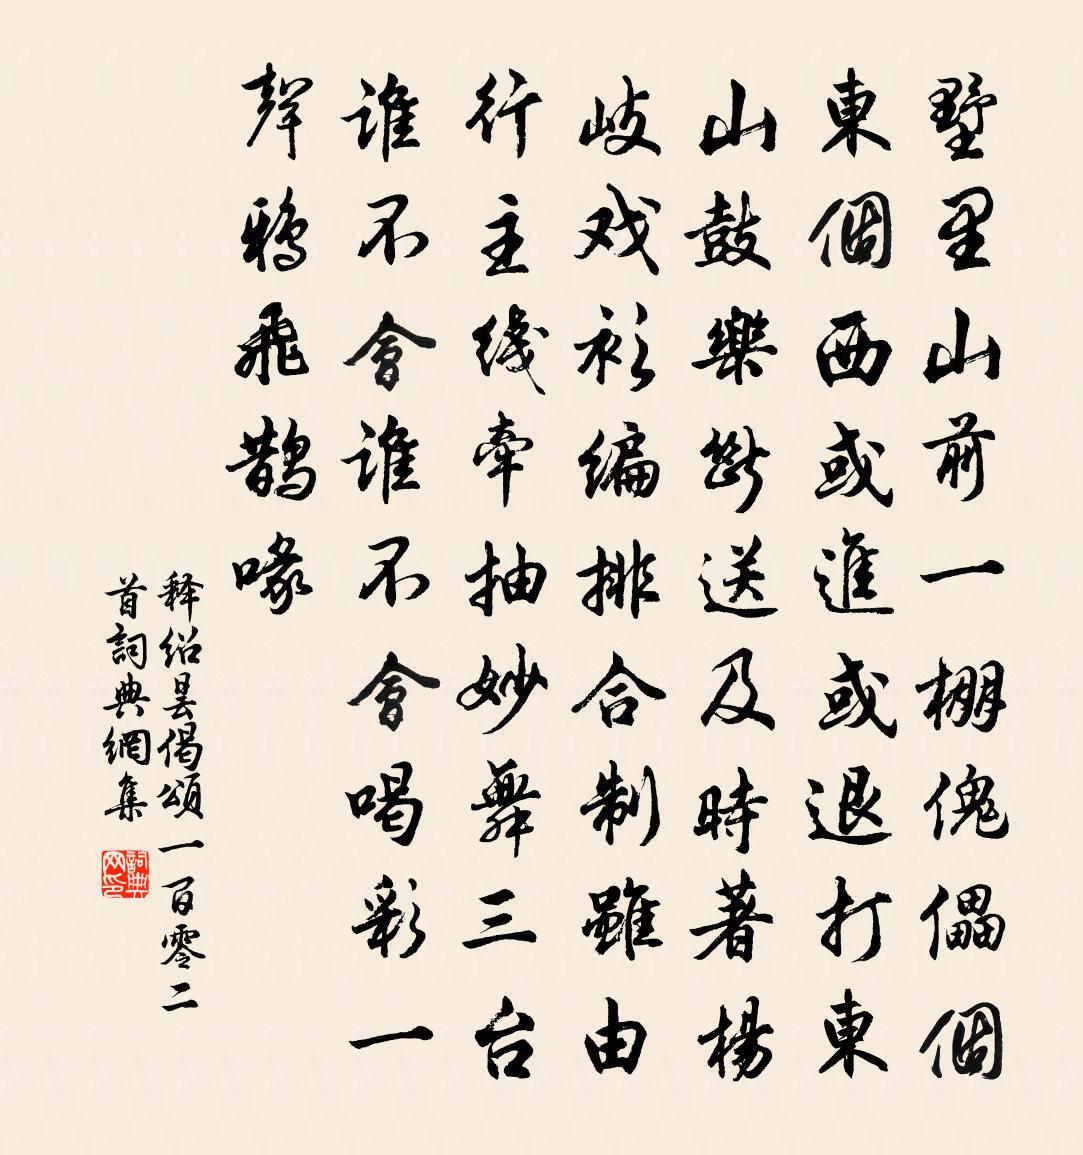 墅里山前一棚傀儡個
東個西或進或退打東
山鼓樂斷送及時著楊
岐戏衫編排合制雖由
行主綫牽抽妙舞三台
誰不會誰不會喝彩一
聲鴉飛鵲喙
释绍昙偈頌一百零二
首詞典網集
詞典网印